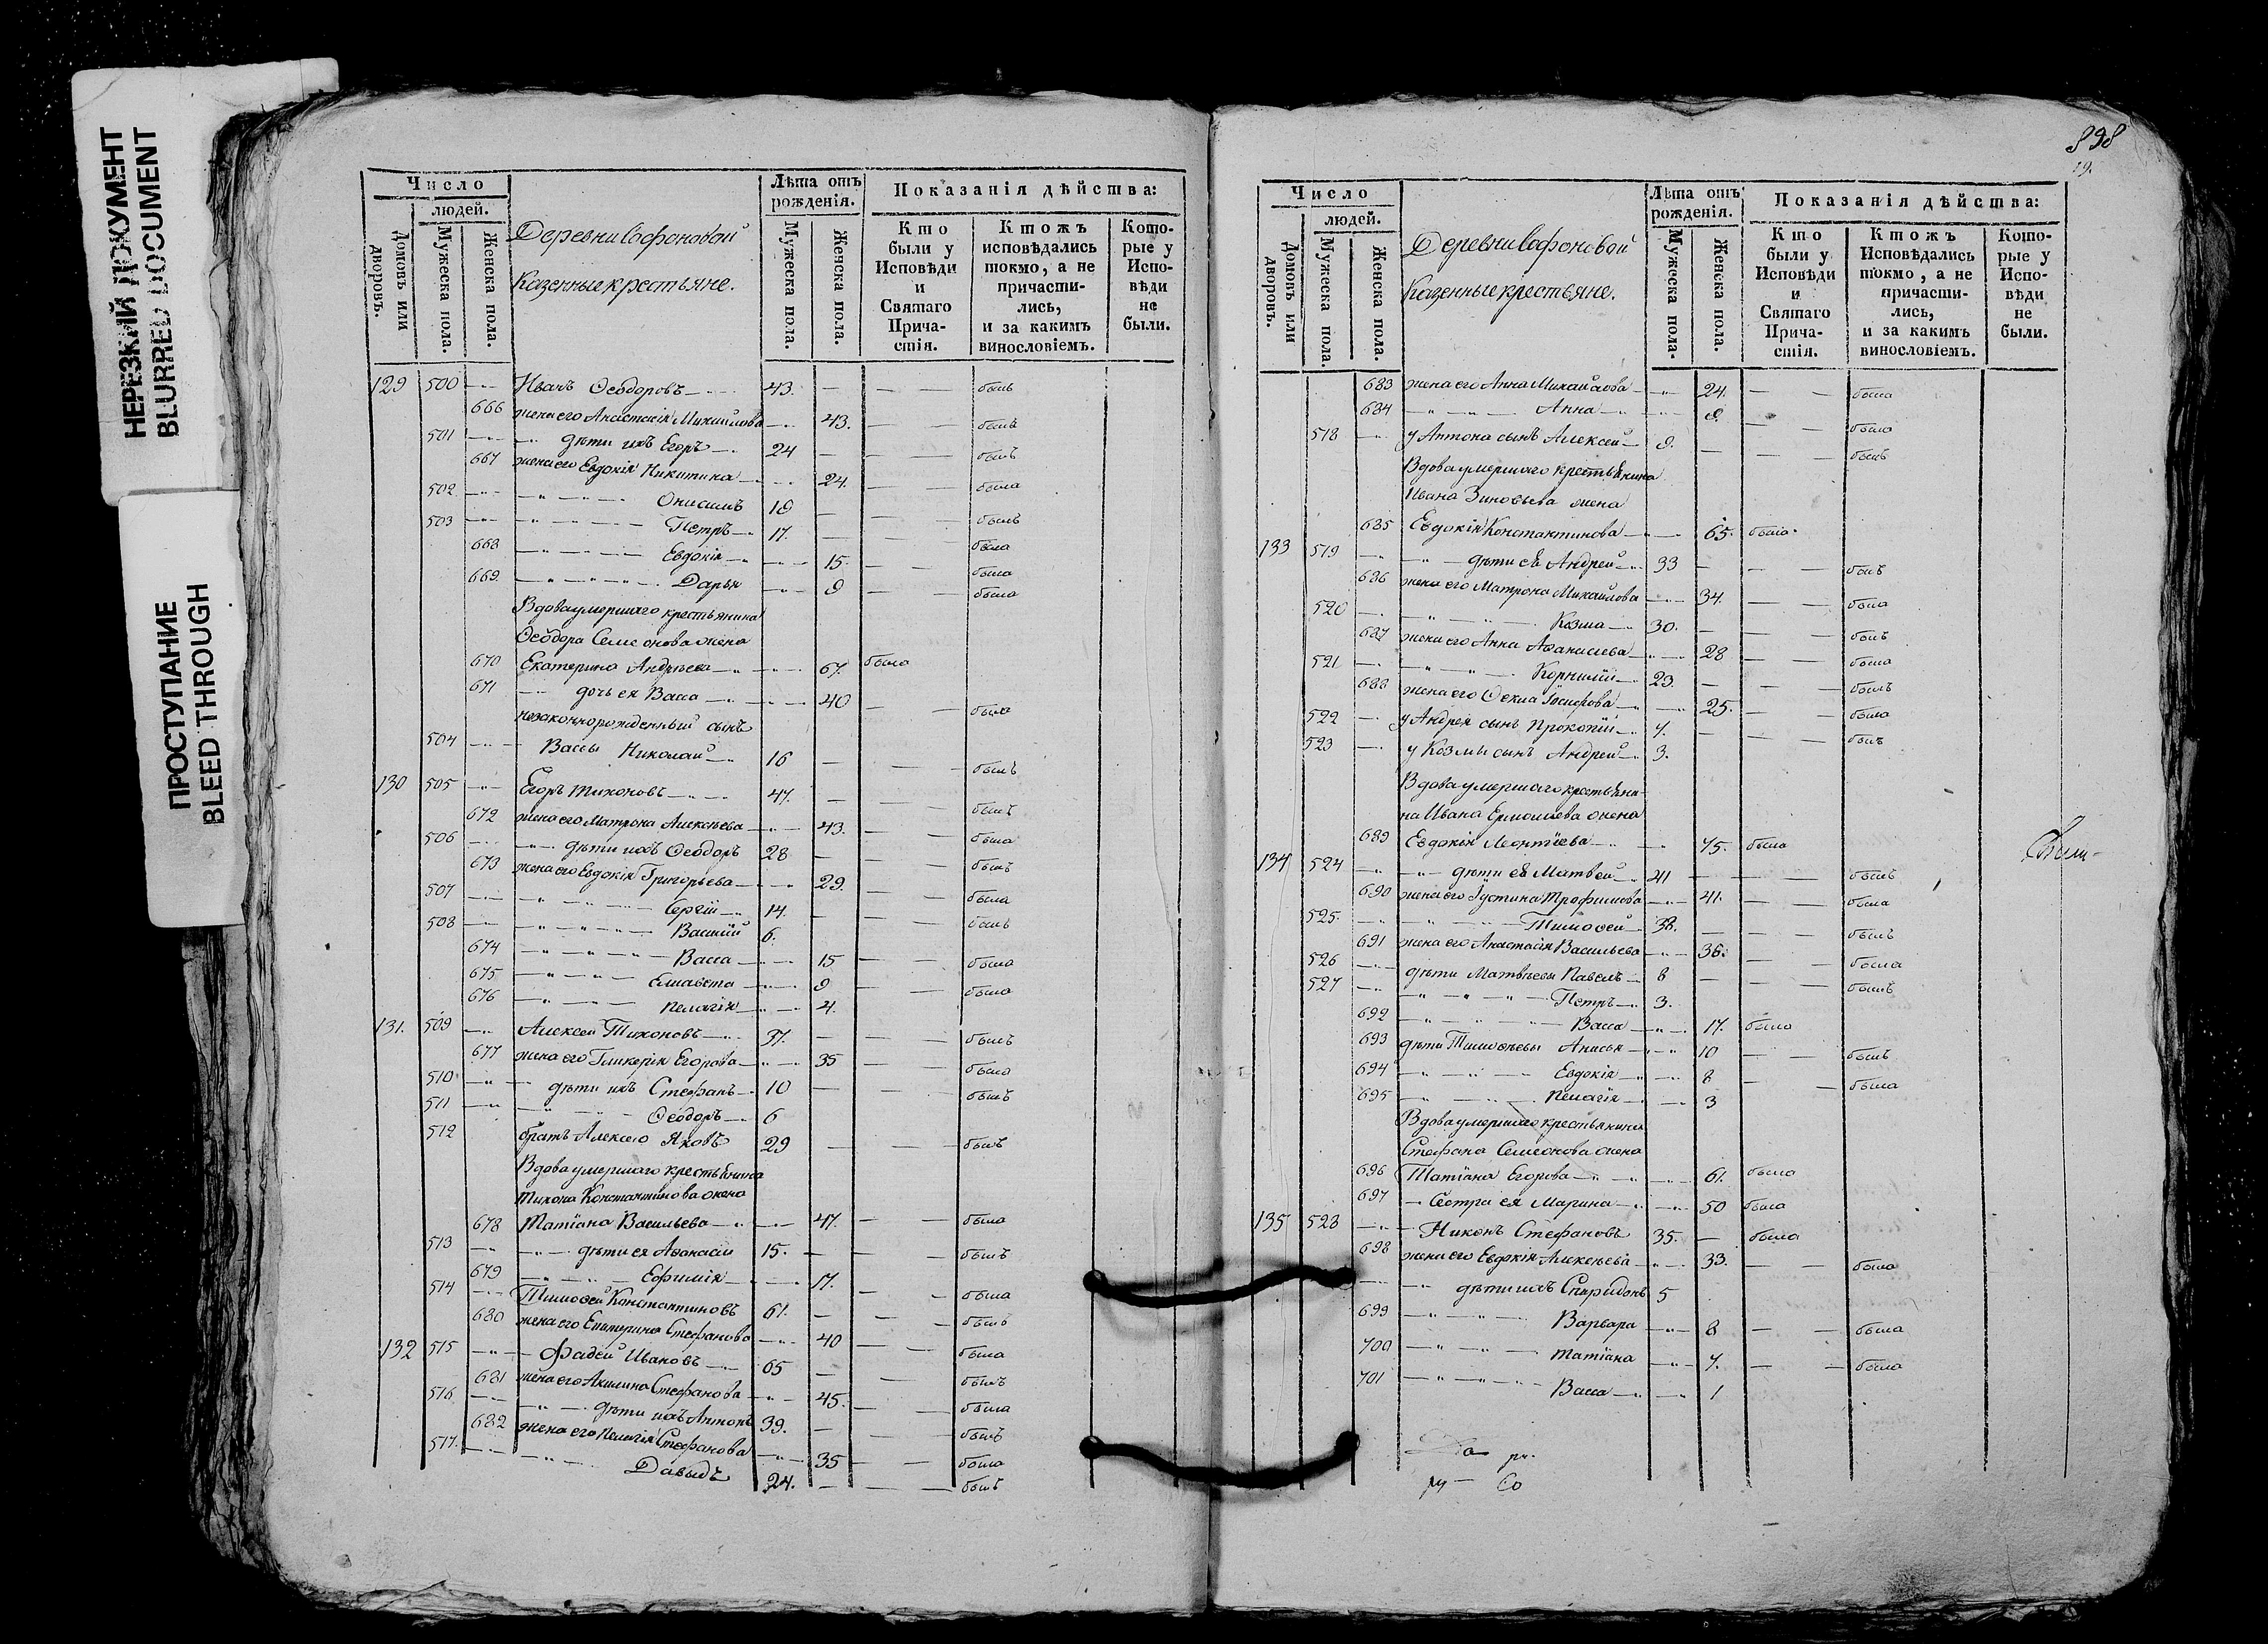 НЕРЕЗКИЙ ДОКУМЕНТ
BLURRED DOCUMENT
ПРОСТУПАНИЕ
BLEED THROUGH
898
19.
Число
людей.
Домовъ или дворовъ.
Мужеска пола.
Женска пола.
Деревни Сафоновой
Казенные крестьяне.
Лѣта отъ рожденія.
Мужеска пола.
Женска пола.
Показанія дѣйства:
Кто были у Исповѣди и Святаго Прича-стія.
Ктожъ исповѣдались токмо, а не причасти-лись, и за какимъ винословіемъ.
Кото-рые у Испо-вѣди не были.
129 500 Иванъ Ѳеодоровъ 43. былъ
666 жена его Анастасія Михайлова 43. была
501 дѣти ихъ Егоръ 24 былъ
667 жена его Евдокія Никитина 24. была
502 Онисимъ 19 былъ
503 Петръ 17. была
668 Евдокія 15. была
669. Дарья 9 была
Вдова умершаго крестьянина
Ѳеодора Семенова жена
670 Екатерина Андреева 67. была
671 дочь ея Васса 40 была
незаконнорожденный сынъ
504 Вассы Николай 16 былъ
130 505 Егоръ Тихоновъ 47. былъ
672 жена его Матрона Алексѣева 43. была
506 дѣти ихъ Ѳеодоръ 28 былъ
673 жена его Евдокія Григорьева 29. была
507 Сергій 14. былъ
508 Василій 6.
674 Васса 15 была
675 Елисавета 9 была
676 Пелагія 4.
131. 509 Алексей Тихоновъ 37. былъ
677 жена его Гликерія Егорова 35 была
510 дѣти ихъ Стефанъ 10 былъ
511 Ѳеодоръ 6
512 братъ Алексея Яковъ 29 былъ
Вдова умершаго крестьянина
Тихона Константинова жена
678 Татіана Васильева 47. была
513 дѣти ея Аѳанасій 15. былъ
679 Ефимія 17. была
514 Тимоѳей Константиновъ 61. былъ
680 жена его Екатерина Стефанова 40 была
132 515 Фадей Ивановъ 65 былъ
681 жена его Акилина Стефанова 45. была
516 дѣти ихъ Антонъ 39. былъ
682 жена его Пелагія Стефанова 35 была
517. Давыдъ 24. былъ
Число
людей.
Домовъ или дворовъ.
Мужеска пола.
Женска пола.
Деревни Сафоновой
Казенные крестьяне.
Лѣта отъ рожденія.
Мужеска пола.
Женска пола.
Показанія дѣйства:
Кто были у Исповѣди и Святаго Прича-стія.
Ктожъ Исповѣдались токмо, а не причасти-лись, и за какимъ винословіемъ.
Кото-рые у Испо-вѣди не были.
683 жена его Анна Михайлова 24. была
684 Анна 9. была
518 у Антона сынъ Алексей 9. былъ
Вдова умершаго крестьянина
Ивана Зиновьева жена
685 Евдокія Константинова 65. была
133 519 дѣти ея Андрей 33 былъ
686 жена его Матрона Михайлова 34. была
520 Козма 30. былъ
687 жена его Анна Аѳанасьева 28 была
521 Корнилій 23. былъ
688 жена его Ѳекла Іосифова 25. была
522 у Андрея сынъ Прокопій 7. былъ
523 у Козмы сынъ Андрей 3.
Вдова умершаго крестьяни-
на Ивана Ермолаева жена
689 Евдокія Леонтіева 75. была
134 524 дѣти ея Матвей 41 былъ
690 жена его Іустина Трофимова 41. была
525. Тимоѳей 38. былъ
691 жена его Анастасія Васильева 36. была
526 дѣти Матвѣевы Павелъ 8 былъ
527 Петръ 3.
692 Васса 17. была
693 дѣти Тимоѳеевы Анисья 10 былъ
694 Евдокія 8 была
695 Пелагія 3
Вдова умершаго крестьянина
Стефана Семеонова жена
696 Татіана Егорова 61. была
697 Сестра ея Марина 50 была
135 528 Никонъ Стефановъ 35. была
698 жена его Евдокія Алексѣева 33. была
дѣти ихъ Спиридонъ 5
699 Варвара 8 была
700 Татіана 7. была
701 Васса 1